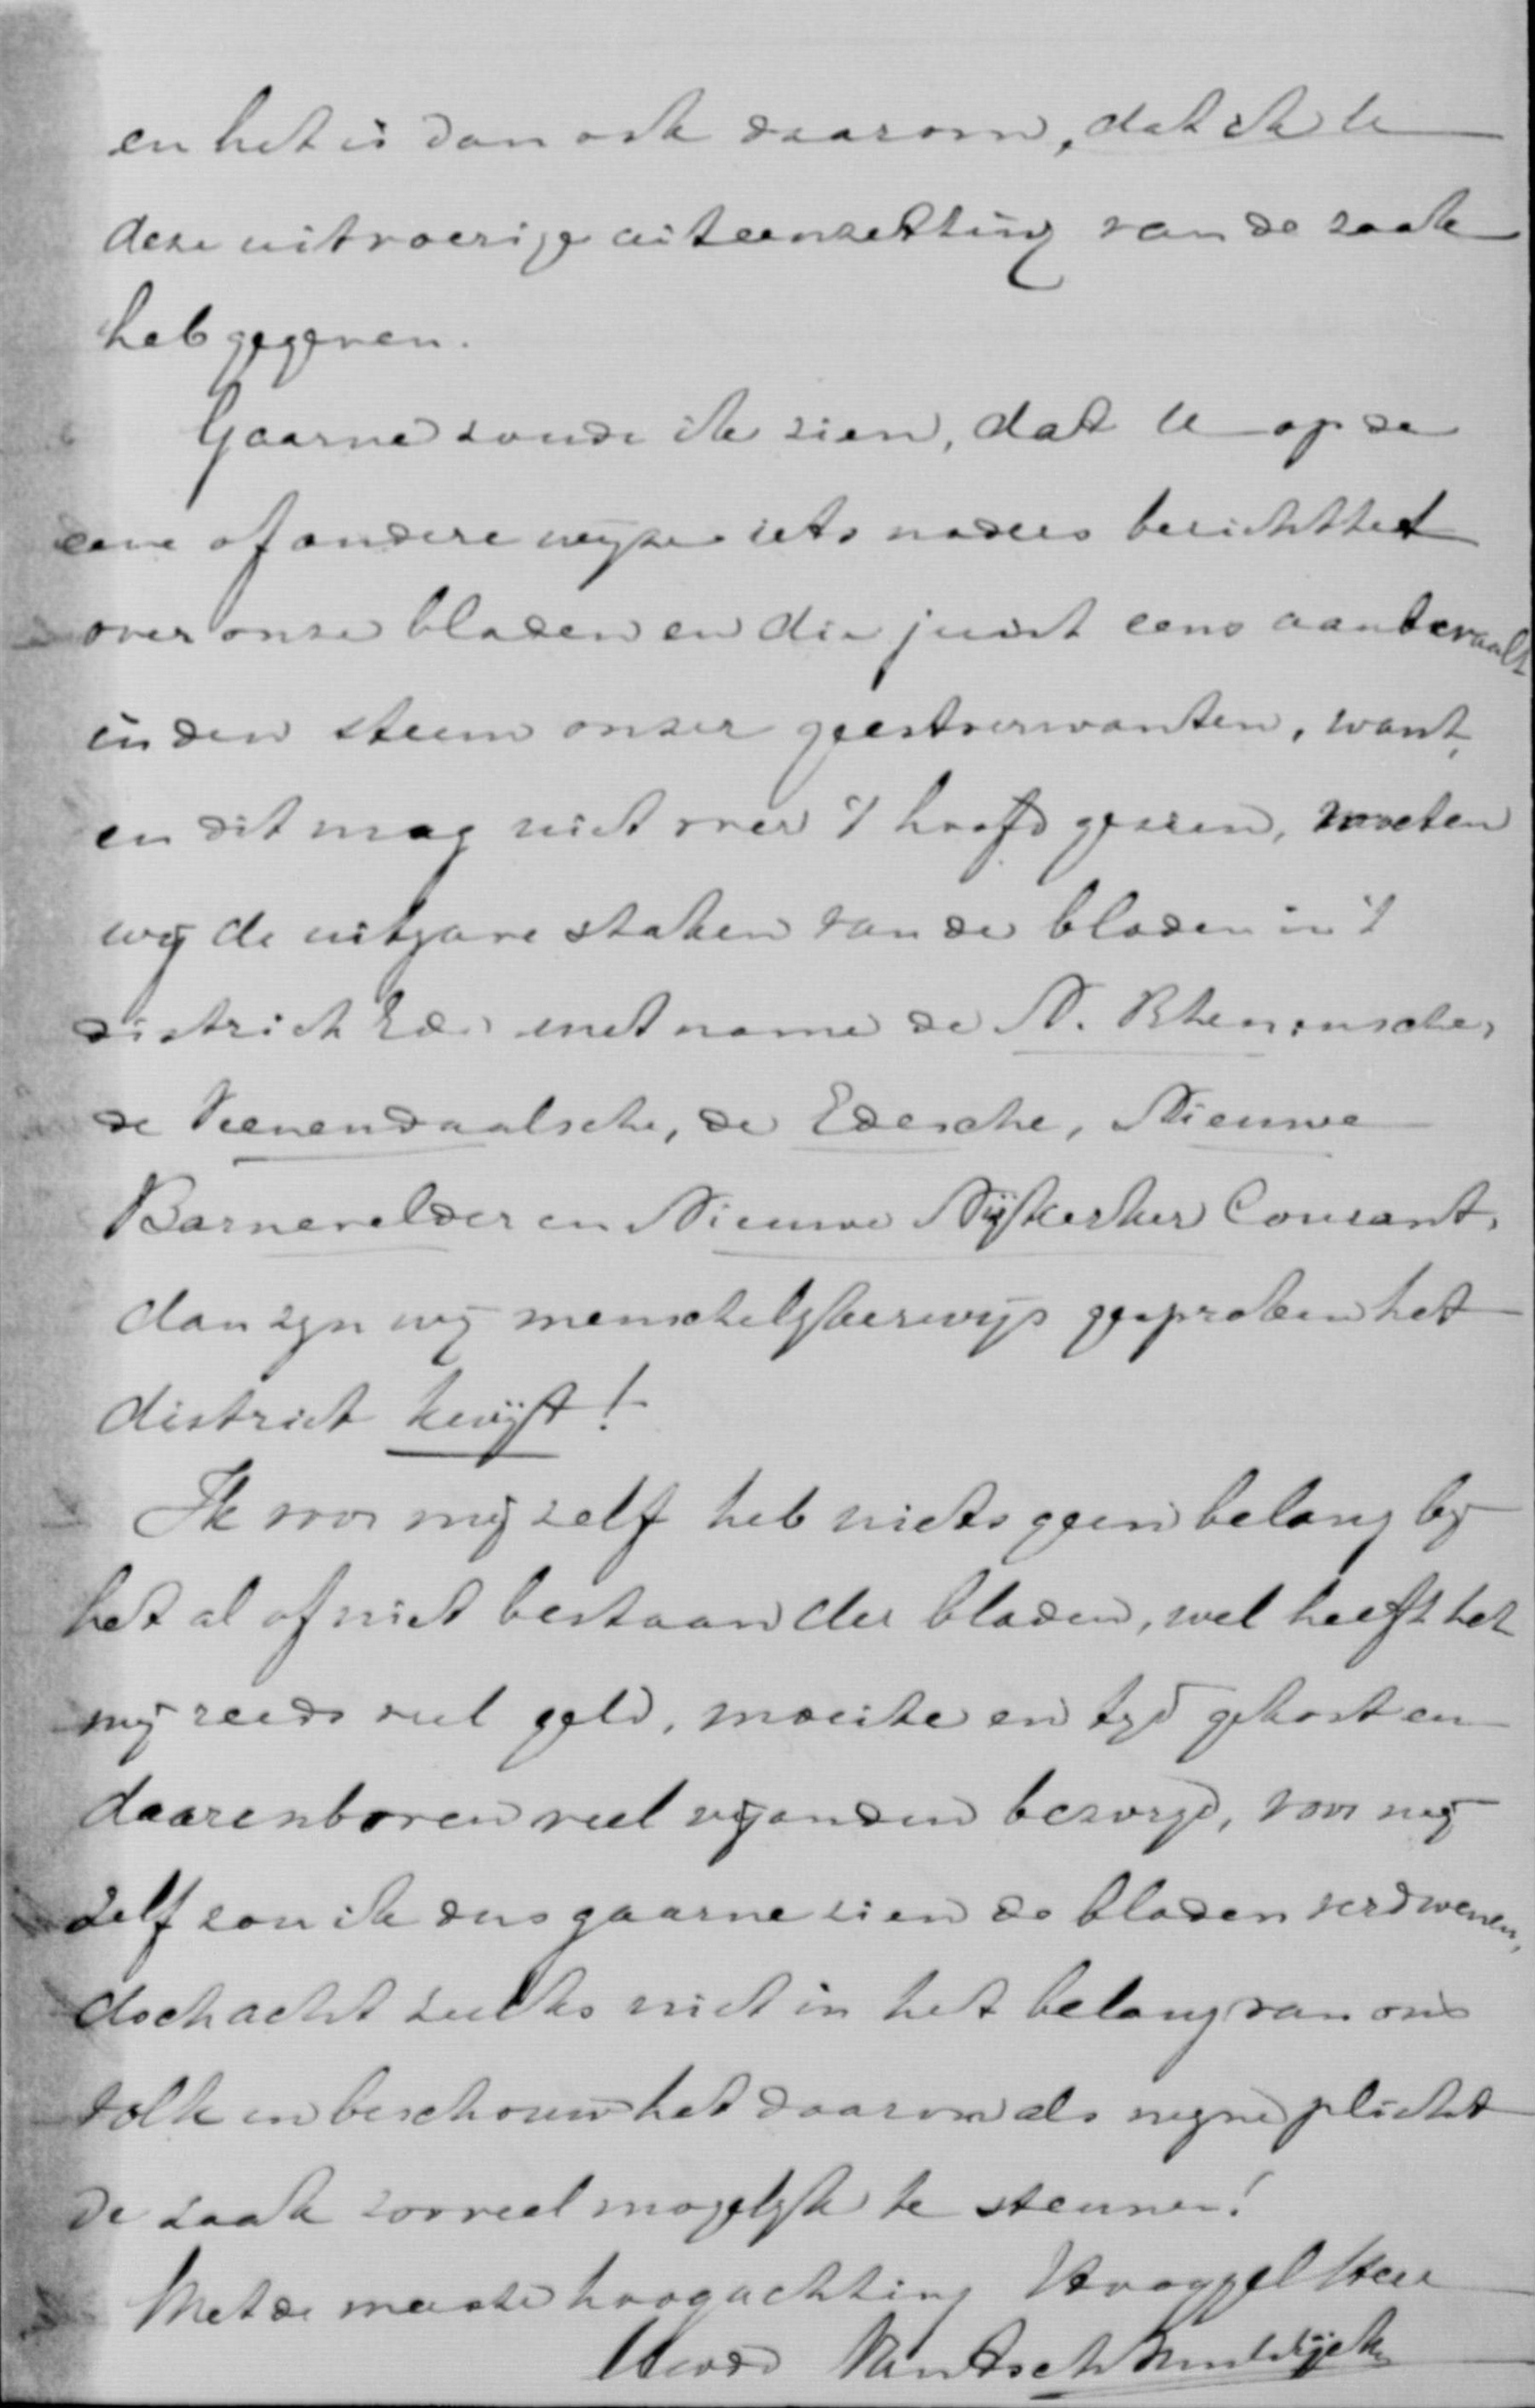 en het is dan ook daarom, dat ik U
deze uitvoerige uiteenzetting van de zaak
heb gegeven.
Gaarne zoude ik zien, dat U op de
eene of andere wijze iets naders berichttet
over onze bladen en die juist eens aanbevaalt
in den steun onzer geestverwanten, want,
en dit mag niet over 't hoofd gezien, moeten
wij de uitgave staken van de bladen in 't
district Ede, met name de N. Rhenensche,
de Veenendaalsche, de Edesche, Nieuwe
Barnevelder en Nieuwe Nijkerker Courant,
dan zijn wij menschelijkerwijs gesproken het
district kwijt!
Ik voor mij zelf heb niets geen belang bij
het al of niet bestaan der bladen, wel heeft het
mij reeds veel geld, moeite en tijd gekost en
daarenboven veel vijanden bezorgd, voor mij
zelf zou ik dus gaarne zien de bladen verdwenen,
doch acht zulks niet in het belang van ons
volk en beschouw het daarom als mijne plicht
de zaak zooveel mogelijk te steunen!
Met de meeste hoogachting Hooggel Heer
UwDd